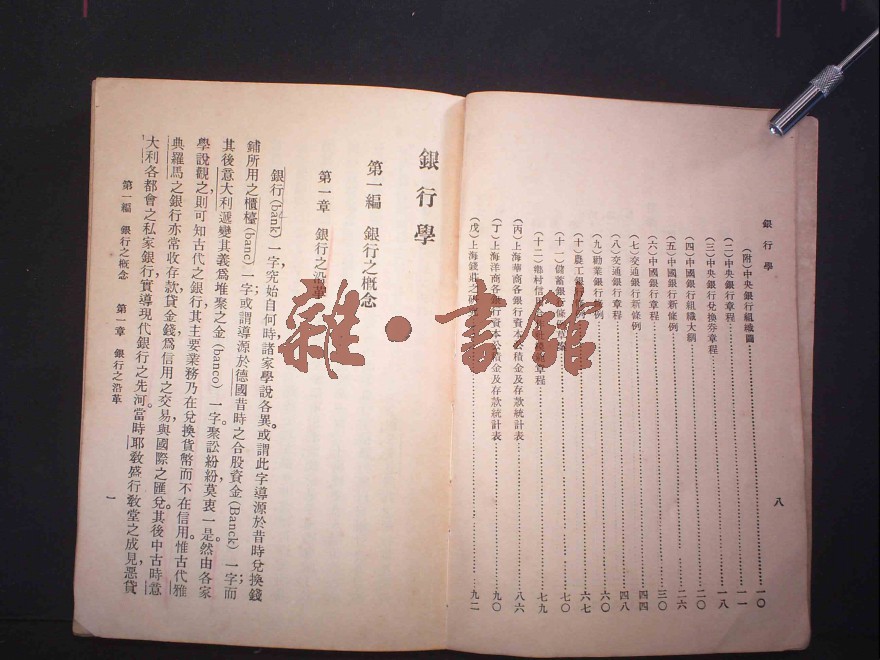 銀行學
八
(附)中央銀行組織圖……一〇
(二)中央銀行章程……一一
(三)中央銀行兌換券章程……一八
(四)中國銀行組織大綱……二〇
(五)中國銀行新條例……二六
(六)中國銀行章程……三〇
(七)交通銀行新條例……四四
(八)交通銀行章程……四八
(九)勸業銀行條例……六〇
(十)農工銀行條例……六七
(十一)儲蓄銀行條例……七〇
(十二)鄉村信用章程……七九
(丙)上海華商各銀行資本公積金及存款統計表……八六
(丁)上海洋商各銀行資本公積金及存款統計表……九〇
(戊)上海錢莊之研究……九二
銀行學
第一編 銀行之概念
第一章 銀行之沿革
銀行(bank)一字,究始自何時,諸家學說各異。或謂此字導源於昔時兌換錢
鋪所用之櫃檯(banc)一字;或謂導源於德國昔時之合股資金(Banck)一字;而
其後意大利遞變其義爲堆聚之金(banco)一字。聚訟紛紛,莫衷一是。然由各家
學說觀之,則可知古代之銀行,其主要業務乃在兌換貨幣而不在信用。惟古代雅
典羅馬之銀行亦常收存款貸金錢,爲信用之交易,與國際之匯兌。其後中古時意
大利各都會之私家銀行,實導現代銀行之先河。當時耶敎盛行,敎堂之成見,惡貸
第一編 銀行之概念 第一章 銀行之沿革
一
雜·書館